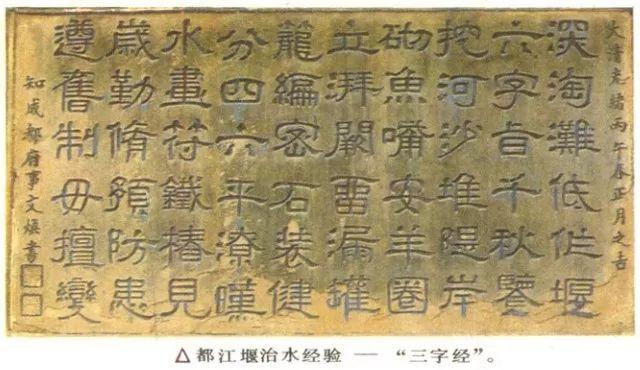 大清光緒丙午春正月之吉
深淘灘低作堰
六字旨千秋鑒
挖河沙堆隄岸
砌魚嘴安羊圈
立湃闕留漏罐
籠編密石裝健
分四六平潦暵
水畫符鐵椿見
歲勤脩預防患
遵舊制毋擅變
知成都府事文煥書
△都江堰治水经验 — “三字经”。